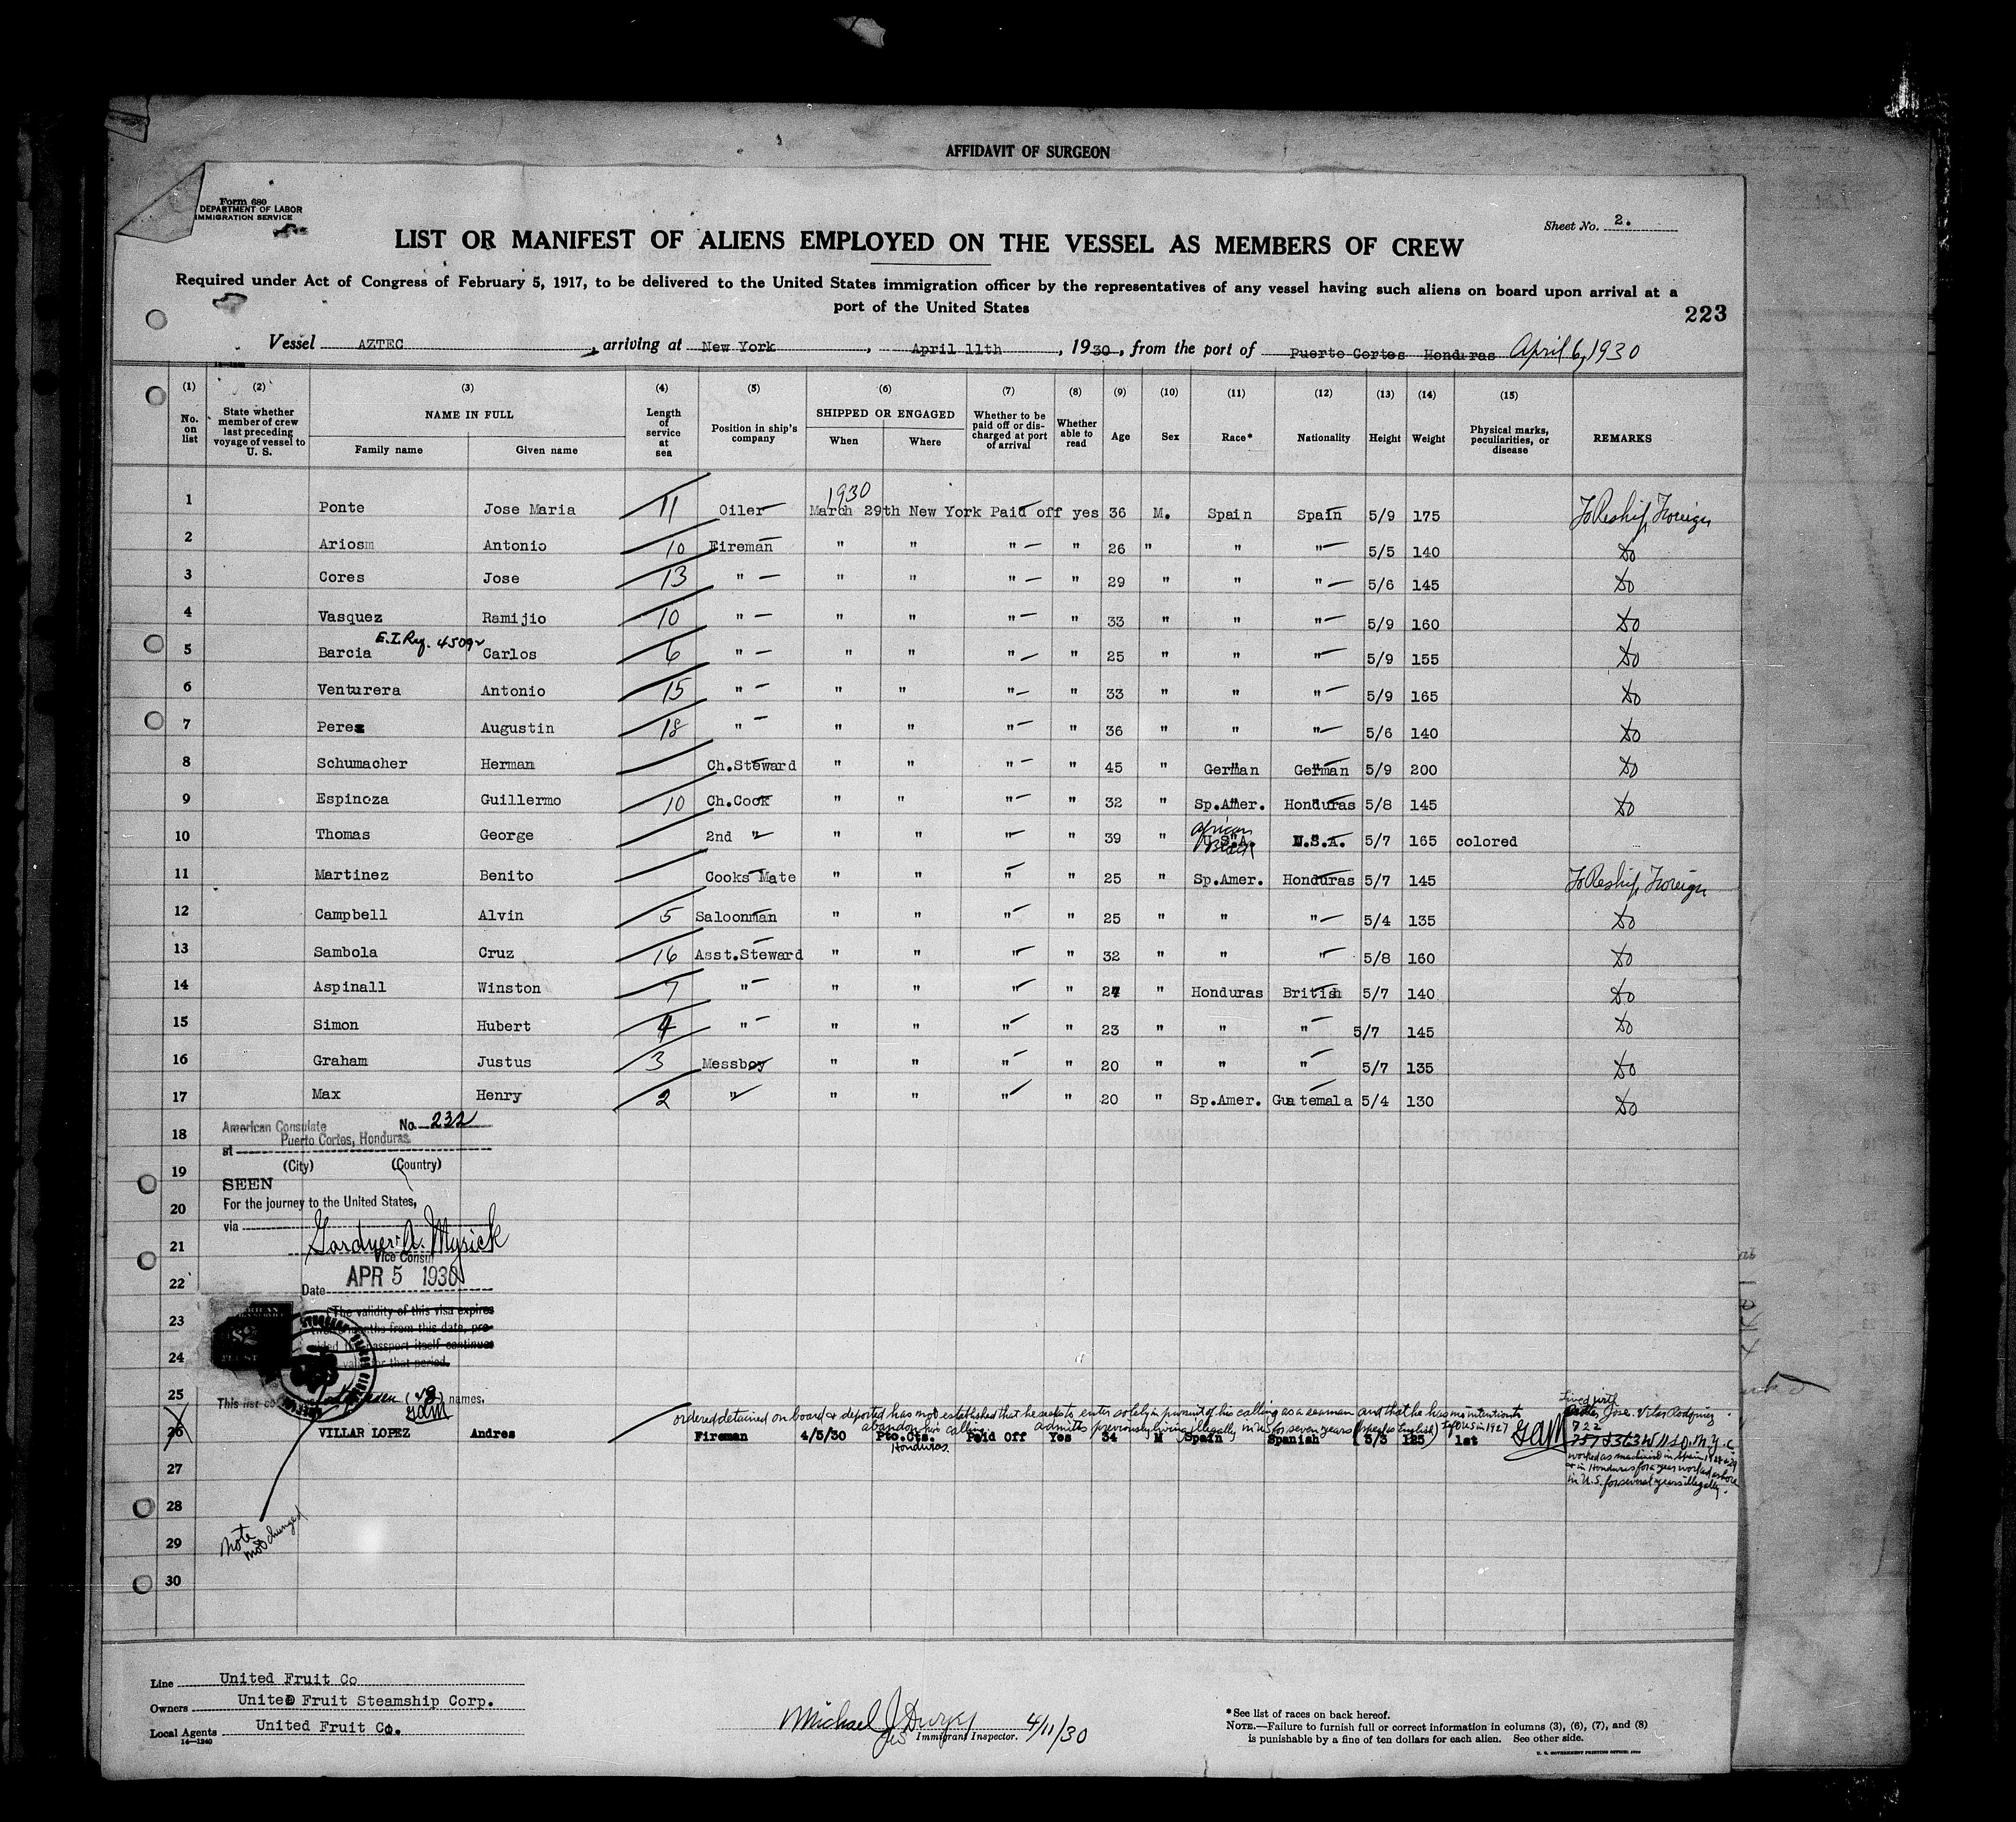 AFFIDAVIT OF SURGEON
Form 680
DEPARTMENT OF LABOR
IMMIGRATION SERVICE
Sheet No. 2.
LIST OR MANIFEST OF ALIENS EMPLOYED ON THE VESSEL AS MEMBERS OF CREW
Required under Act of Congress of February 5, 1917, to be delivered to the United States immigration officer by the representatives of any vessel having such aliens on board upon arrival at a
port of the United States
223
Vessel AZTEC, arriving at New York, April 11th, 1930, from the port of Puerto Cortes Honduras April 6, 1930
(1) (2) (3) (4) (5) (6) (7) (8) (9) (10) (11) (12) (13) (14) (15)
No. on list State whether member of crew last preceding voyage of vessel to U. S. NAME IN FULL Length of service at sea Position in ship's company SHIPPED OR ENGAGED Whether to be paid off or discharged at port of arrival Whether able to read Age Sex Race* Nationality Height Weight Physical marks, peculiarities, or disease REMARKS
Family name Given name When Where
1930
1 Ponte Jose Maria 11 Oiler March 29th New York Paid off yes 36 M. Spain Spain 5/9 175 To Reship Foreign
2 Ariosm Antonio 10 Fireman " " " " 26 " " " 5/5 140 Do
3 Cores Jose 13 " " " " " 29 " " " 5/6 145 Do
4 Vasquez Ramijio 10 " " " " " 33 " " " 5/9 160 Do
E.I. Reg. 45092
5 Barcia Carlos 6 " " " " " 25 " " " 5/9 155 Do
6 Venturera Antonio 15 " " " " " 33 " " " 5/9 165 Do
7 Perez Augustin 18 " " " " " 36 " " " 5/6 140 Do
8 Schumacher Herman Ch.Steward " " " " 45 " German German 5/9 200 Do
9 Espinoza Guillermo 10 Ch.Cook " " " " 32 " Sp.Amer. Honduras 5/8 145 Do
African
10 Thomas George 2nd " " " " " 39 " U.S.A. U.S.A. 5/7 165 colored
Black
11 Martinez Benito Cooks Mate " " " " 25 " Sp.Amer. Honduras 5/7 145 To Reship Foreign
12 Campbell Alvin 5 Saloonman " " " " 25 " " " 5/4 135 Do
13 Sambola Cruz 16 Asst.Steward " " " " 32 " " " 5/8 160 Do
14 Aspinall Winston 7 " " " " " 24 " Honduras British 5/7 140 Do
15 Simon Hubert 4 " " " " " 23 " " " 5/7 145 Do
16 Graham Justus 3 Messboy " " " " 20 " " " 5/7 135 Do
17 Max Henry 2 " " " " " 20 " Sp.Amer. Guatemala 5/4 130 Do
American Consulate No. 232
18
Puerto Cortes, Honduras
at
(City) (Country)
19
SEEN
For the journey to the United States,
20
via
21
Gardyer A. Myrick
Vice Consul
APR 5 1930
22
Date
The validity of this visa expires
23
months from this date, pro-
passport itself continues
24
for that period.
25
This list names.
GAM
ordered detained on board & deported has not established that he seeks to enter solely in pursuit of his calling as a seaman and that he has no intention to
abandon his calling. admits previously living illegally in U.S. for seven years (speaks English) Left U.S. in 1927
26 VILLAR LOPEZ Andres Fireman 4/5/30 Pto.Cts. Honduras Paid Off Yes 34 M Spain Spanish 5/3 125 1st GAM
worked as machinist in Spain
& in Honduras for a year worked ashore
in U.S. for several years illegally.
27
28
note
not changed
29
30
Line United Fruit Co
Owners United Fruit Steamship Corp.
Local Agents United Fruit Co.
14—1240
Michael J Dwyer 4/11/30
Immigrant Inspector.
*See list of races on back hereof.
NOTE.—Failure to furnish full or correct information in columns (3), (6), (7), and (8)
is punishable by a fine of ten dollars for each alien. See other side.
U. S. GOVERNMENT PRINTING OFFICE